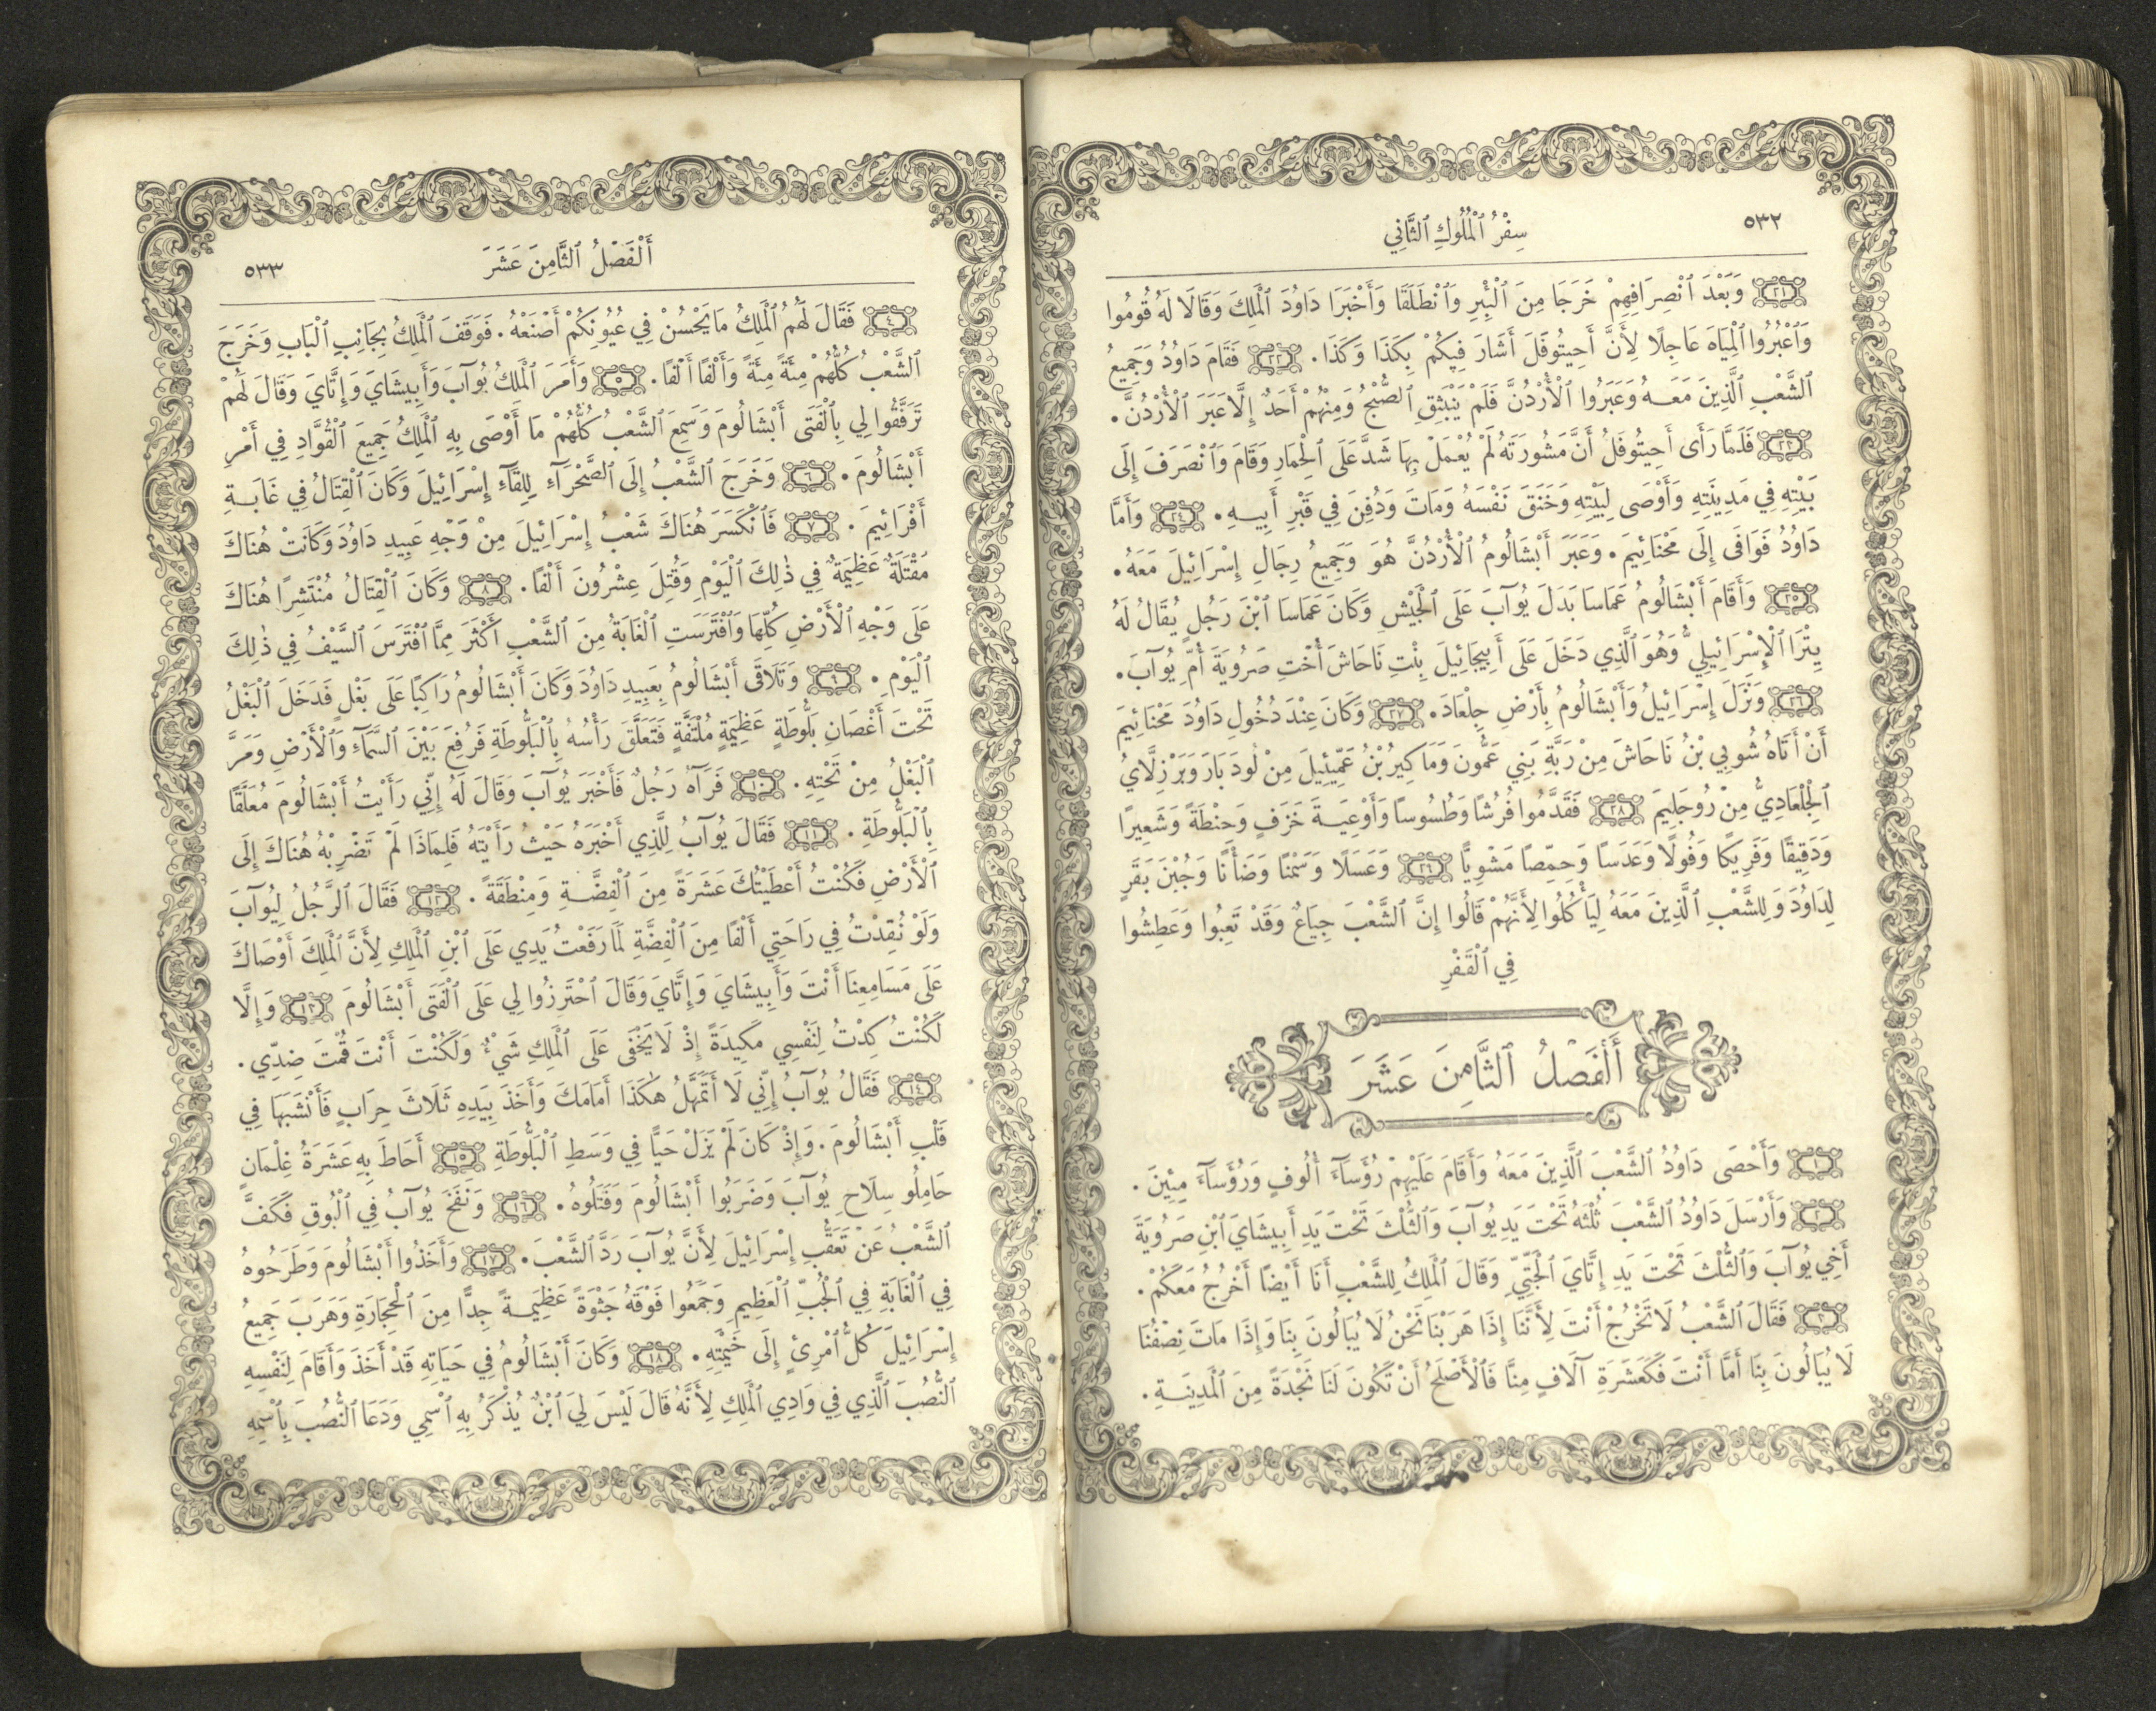 ٥٣٢
سِفْرُ ٱلْمُلُوكِ ٱلثَّانِي
٢١ وَبَعْدَ ٱنْصِرَافِهِمْ خَرَجَا مِنَ ٱلْبِئْرِ وَٱنْطَلَقَا وَأَخْبَرَا دَاوُدَ ٱلْمَلِكَ وَقَالَا لَهُ قُومُوا
وَٱعْبُرُوا ٱلْمِيَاهَ عَاجِلًا لِأَنَّ أَحِيتُوفَلَ أَشَارَ فِيكُمْ بِكَذَا وَكَذَا. ٢٢ فَقَامَ دَاوُدُ وَجَمِيعُ
ٱلشَّعْبِ ٱلَّذِينَ مَعَهُ وَعَبَرُوا ٱلْأُرْدُنَّ فَلَمْ يَنْبَثِقِ ٱلصُّبْحُ وَمِنْهُمْ أَحَدٌ إِلَّا عَبَرَ ٱلْأُرْدُنَّ.
٢٣ فَلَمَّا رَأَى أَحِيتُوفَلُ أَنَّ مَشُورَتَهُ لَمْ يُعْمَلْ بِهَا شَدَّ عَلَى ٱلْحِمَارِ وَقَامَ وَٱنْصَرَفَ إِلَى
بَيْتِهِ فِي مَدِينَتِهِ وَأَوْصَى لِبَيْتِهِ وَخَنَقَ نَفْسَهُ وَمَاتَ وَدُفِنَ فِي قَبْرِ أَبِيهِ. ٢٤ وَأَمَّا
دَاوُدُ فَوَافَى إِلَى مَحْنَائِيمَ. وَعَبَرَ أَبْشَالُومُ ٱلْأُرْدُنَّ هُوَ وَجَمِيعُ رِجَالِ إِسْرَائِيلَ مَعَهُ.
٢٥ وَأَقَامَ أَبْشَالُومُ عَمَاسَا بَدَلَ يُوآبَ عَلَى ٱلْجَيْشِ وَكَانَ عَمَاسَا ٱبْنَ رَجُلٍ يُقَالُ لَهُ
يِتْرَا ٱلْإِسْرَائِيلِيُّ وَهُوَ ٱلَّذِي دَخَلَ عَلَى أَبِيجَائِيلَ بِنْتِ نَاحَاشَ أُخْتِ صَرُويَةَ أُمِّ يُوآبَ.
٢٦ وَنَزَلَ إِسْرَائِيلُ وَأَبْشَالُومُ بِأَرْضِ جِلْعَادَ. ٢٧ وَكَانَ عِنْدَ دُخُولِ دَاوُدَ مَحْنَائِيمَ
أَنْ أَتَاهُ شُوبِي بْنُ نَاحَاشَ مِنْ رَبَّةِ بَنِي عَمُّونَ وَمَاكِيرُ بْنُ عَمِّيئِيلَ مِنْ لُودَبَارَ وَبَرْزِلَّايُ
ٱلْجِلْعَادِيُّ مِنْ رُوجَلِيمَ ٢٨ فَقَدَّمُوا فُرُشًا وَطُسُوسًا وَأَوْعِيَةَ خَزَفٍ وَحِنْطَةً وَشَعِيرًا
وَدَقِيقًا وَفَرِيكًا وَفُولًا وَعَدَسًا وَحِمَّصًا مَشْوِيًّا ٢٩ وَعَسَلًا وَسَمْنًا وَضَأْنًا وَجُبْنَ بَقَرٍ
لِدَاوُدَ وَلِلشَّعْبِ ٱلَّذِينَ مَعَهُ لِيَأْكُلُوا لِأَنَّهُمْ قَالُوا إِنَّ ٱلشَّعْبَ جِيَاعٌ وَقَدْ تَعِبُوا وَعَطِشُوا
فِي ٱلْقَفْرِ
أَلْفَصْلُ ٱلثَّامِنَ عَشَرَ
١ وَأَحْصَى دَاوُدُ ٱلشَّعْبَ ٱلَّذِينَ مَعَهُ وَأَقَامَ عَلَيْهِمْ رُؤَسَآءَ أُلُوفٍ وَرُؤَسَآءَ مِئِينَ.
٢ وَأَرْسَلَ دَاوُدُ ٱلشَّعْبَ ثُلْثَهُ تَحْتَ يَدِ يُوآبَ وَٱلثُّلْثَ تَحْتَ يَدِ أَبِيشَايَ ٱبْنِ صَرُويَةَ
أَخِي يُوآبَ وَٱلثُّلْثَ تَحْتَ يَدِ إِتَّايَ ٱلْجَتِّيِّ وَقَالَ ٱلْمَلِكُ لِلشَّعْبِ أَنَا أَيْضًا أَخْرُجُ مَعَكُمْ.
٣ فَقَالَ ٱلشَّعْبُ لَا تَخْرُجْ أَنْتَ لِأَنَّنَا إِذَا هَرَبْنَا نَحْنُ لَا يُبَالُونَ بِنَا وَإِذَا مَاتَ نِصْفُنَا
لَا يُبَالُونَ بِنَا أَمَّا أَنْتَ فَكَعَشَرَةِ آلَافٍ مِنَّا فَٱلْأَصْلَحُ أَنْ تَكُونَ لَنَا نَجْدَةً مِنَ ٱلْمَدِينَةِ.
أَلْفَصْلُ ٱلثَّامِنَ عَشَرَ
٥٣٣
٤ فَقَالَ لَهُمُ ٱلْمَلِكُ مَا يَحْسُنْ فِي عُيُونِكُمْ أَصْنَعْهُ. فَوَقَفَ ٱلْمَلِكُ بِجَانِبِ ٱلْبَابِ وَخَرَجَ
ٱلشَّعْبُ كُلُّهُمْ مِئَةً مِئَةً وَأَلْفًا أَلْفًا. ٥ وَأَمَرَ ٱلْمَلِكُ يُوآبَ وَأَبِيشَايَ وَإِتَّايَ وَقَالَ لَهُمْ
تَرَفَّقُوا لِي بِٱلْفَتَى أَبْشَالُومَ وَسَمِعَ ٱلشَّعْبُ كُلُّهُمْ مَا أَوْصَى بِهِ ٱلْمَلِكُ جَمِيعَ ٱلْقُوَّادِ فِي أَمْرِ
أَبْشَالُومَ. ٦ وَخَرَجَ ٱلشَّعْبُ إِلَى ٱلصَّحْرَآءِ لِلِقَآءِ إِسْرَائِيلَ وَكَانَ ٱلْقِتَالُ فِي غَابَةِ
أَفْرَائِيمَ. ٧ فَٱنْكَسَرَ هُنَاكَ شَعْبُ إِسْرَائِيلَ مِنْ وَجْهِ عَبِيدِ دَاوُدَ وَكَانَتْ هُنَاكَ
مَقْتَلَةٌ عَظِيمَةٌ فِي ذٰلِكَ ٱلْيَوْمِ وَقُتِلَ عِشْرُونَ أَلْفًا. ٨ وَكَانَ ٱلْقِتَالُ مُنْتَشِرًا هُنَاكَ
عَلَى وَجْهِ ٱلْأَرْضِ كُلِّهَا وَٱفْتَرَسَتِ ٱلْغَابَةُ مِنَ ٱلشَّعْبِ أَكْثَرَ مِمَّا ٱفْتَرَسَ ٱلسَّيْفُ فِي ذٰلِكَ
ٱلْيَوْمِ. ٩ وَتَلَاقَى أَبْشَالُومُ بِعَبِيدِ دَاوُدَ وَكَانَ أَبْشَالُومُ رَاكِبًا عَلَى بَغْلٍ فَدَخَلَ ٱلْبَغْلُ
تَحْتَ أَغْصَانِ بَلُّوطَةٍ عَظِيمَةٍ مُلْتَفَّةٍ فَتَعَلَّقَ رَأْسُهُ بِٱلْبَلُّوطَةِ فَرُفِعَ بَيْنَ ٱلسَّمَآءِ وَٱلْأَرْضِ وَمَرَّ
ٱلْبَغْلُ مِنْ تَحْتِهِ. ١٠ فَرَآهُ رَجُلٌ فَأَخْبَرَ يُوآبَ وَقَالَ لَهُ إِنِّي رَأَيْتُ أَبْشَالُومَ مُعَلَّقًا
بِٱلْبَلُّوطَةِ. ١١ فَقَالَ يُوآبُ لِلَّذِي أَخْبَرَهُ حَيْثُ رَأَيْتَهُ فَلِمَاذَا لَمْ تَضْرِبْهُ هُنَاكَ إِلَى
ٱلْأَرْضِ فَكُنْتُ أَعْطَيْتُكَ عَشَرَةً مِنَ ٱلْفِضَّةِ وَمِنْطَقَةً. ١٢ فَقَالَ ٱلرَّجُلُ لِيُوآبَ
وَلَوْ نُقِدْتُ فِي رَاحَتِي أَلْفًا مِنَ ٱلْفِضَّةِ لَمَا رَفَعْتُ يَدِي عَلَى ٱبْنِ ٱلْمَلِكِ لِأَنَّ ٱلْمَلِكَ أَوْصَاكَ
عَلَى مَسَامِعِنَا أَنْتَ وَأَبِيشَايَ وَإِتَّايَ وَقَالَ ٱحْتَرِزُوا لِي عَلَى ٱلْفَتَى أَبْشَالُومَ ١٣ وَإِلَّا
لَكُنْتُ كِدْتُ لِنَفْسِي مَكِيدَةً إِذْ لَا يَخْفَى عَلَى ٱلْمَلِكِ شَيْءٌ وَلَكُنْتَ أَنْتَ قُمْتَ ضِدِّي.
١٤ فَقَالَ يُوآبُ إِنِّي لَا أَتَمَهَّلُ هٰكَذَا أَمَامَكَ وَأَخَذَ بِيَدِهِ ثَلَاثَ حِرَابٍ فَأَنْشَبَهَا فِي
قَلْبِ أَبْشَالُومَ. وَإِذْ كَانَ لَمْ يَزَلْ حَيًّا فِي وَسَطِ ٱلْبَلُّوطَةِ ١٥ أَحَاطَ بِهِ عَشَرَةُ غِلْمَانٍ
حَامِلُو سِلَاحِ يُوآبَ وَضَرَبُوا أَبْشَالُومَ وَقَتَلُوهُ. ١٦ وَنَفَخَ يُوآبُ فِي ٱلْبُوقِ فَكَفَّ
ٱلشَّعْبُ عَنْ تَعَقُّبِ إِسْرَائِيلَ لِأَنَّ يُوآبَ رَدَّ ٱلشَّعْبَ. ١٧ وَأَخَذُوا أَبْشَالُومَ وَطَرَحُوهُ
فِي ٱلْغَابَةِ فِي ٱلْجُبِّ ٱلْعَظِيمِ وَجَمَعُوا فَوْقَهُ جَثْوَةً عَظِيمَةً جِدًّا مِنَ ٱلْحِجَارَةِ وَهَرَبَ جَمِيعُ
إِسْرَائِيلَ كُلُّ ٱمْرِئٍ إِلَى خَيْمَتِهِ. ١٨ وَكَانَ أَبْشَالُومُ فِي حَيَاتِهِ قَدْ أَخَذَ وَأَقَامَ لِنَفْسِهِ
ٱلنُّصُبَ ٱلَّذِي فِي وَادِي ٱلْمَلِكِ لِأَنَّهُ قَالَ لَيْسَ لِيَ ٱبْنٌ يُذْكَرُ بِهِ ٱسْمِي وَدَعَا ٱلنُّصُبَ بِٱسْمِهِ